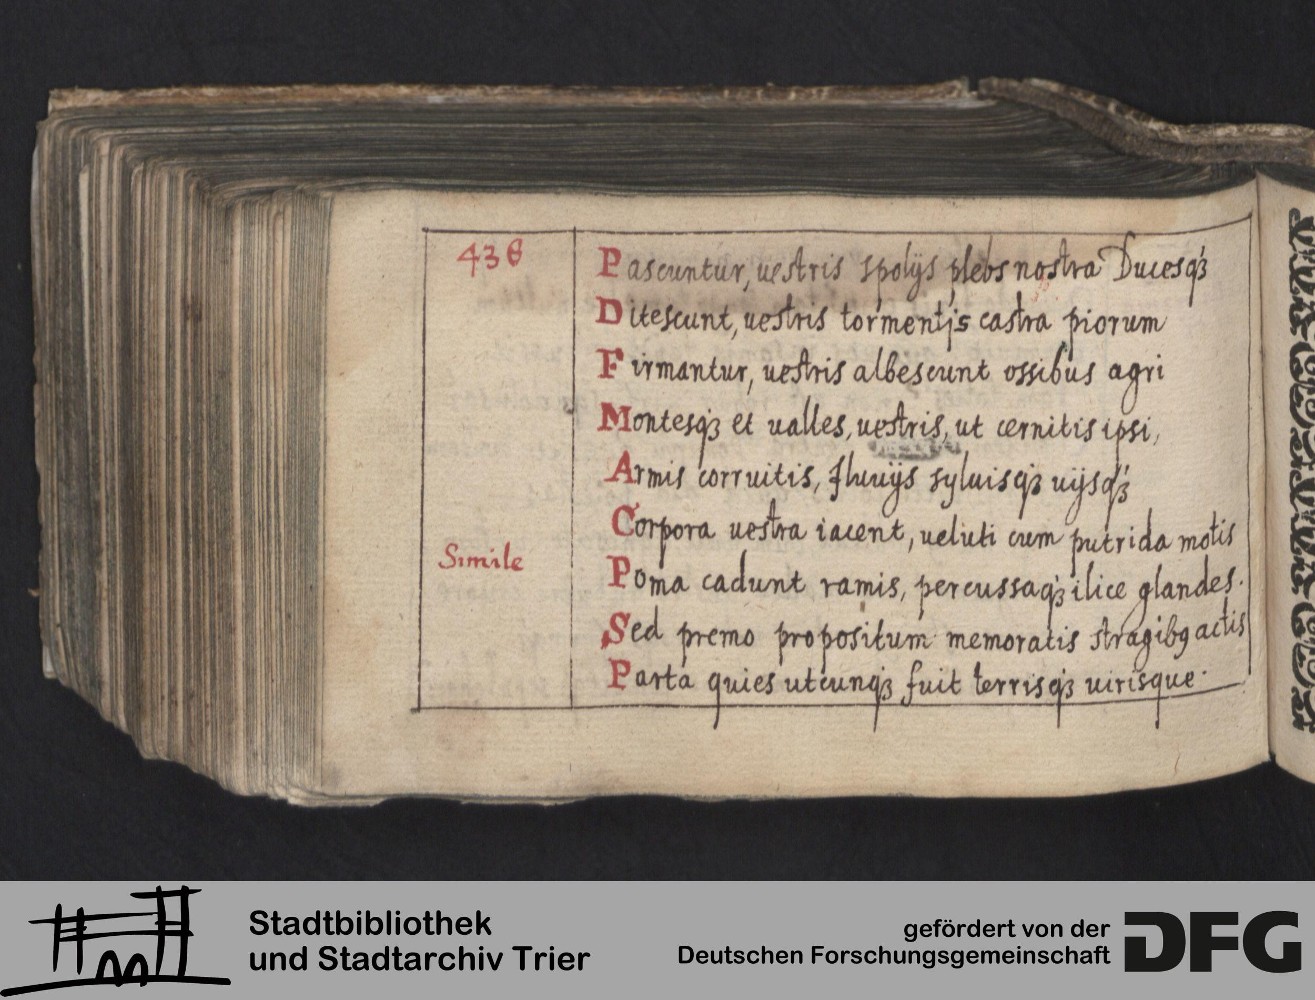 438
Pascuntur, uestris spolijs plebs nostra Ducesqꝫ
Ditescunt, uestris tormentjs castra piorum
Firmantur, uestris albescunt ossibus agri
Montesqꝫ et ualles, uestris, ut cernitis ipsi,
Armis corruitis, fluuijs syluisqꝫ uijsqꝫ
Corpora uestra iacent, ueluti cum putrida motis
Simile
Poma cadunt ramis, percussaqꝫ ilice glandes.
Sed premo propositum memoratis stragibꝯ actis
Parta quies utcunqꝫ fuit terrisqꝫ uirisque.
Stadtbibliothek
und Stadtarchiv Trier
gefördert von der
Deutschen Forschungsgemeinschaft
DFG